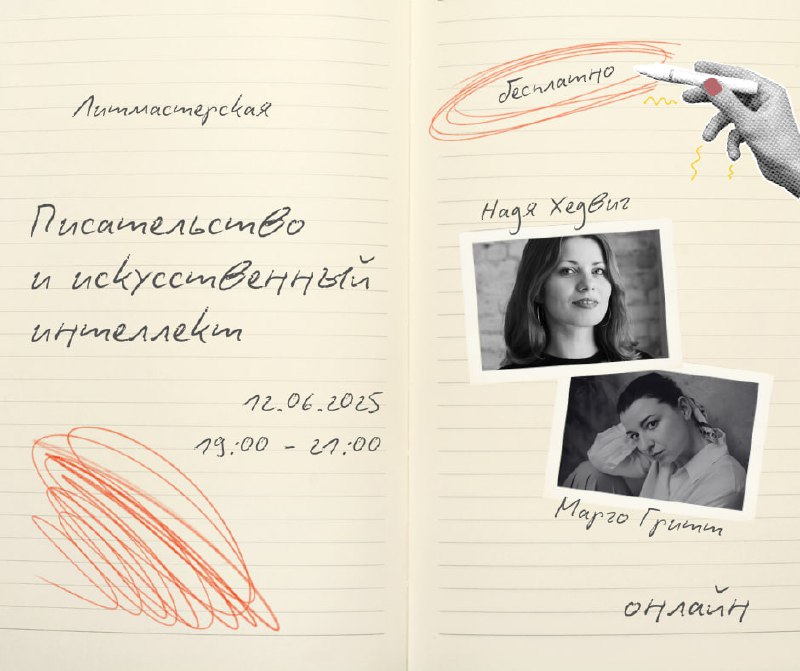 Литмастерская
Писательство
и искусственный
интеллект
12.06.2025
19:00 - 21:00
бесплатно
Надя Хедвиг
Марго Гритт
онлайн